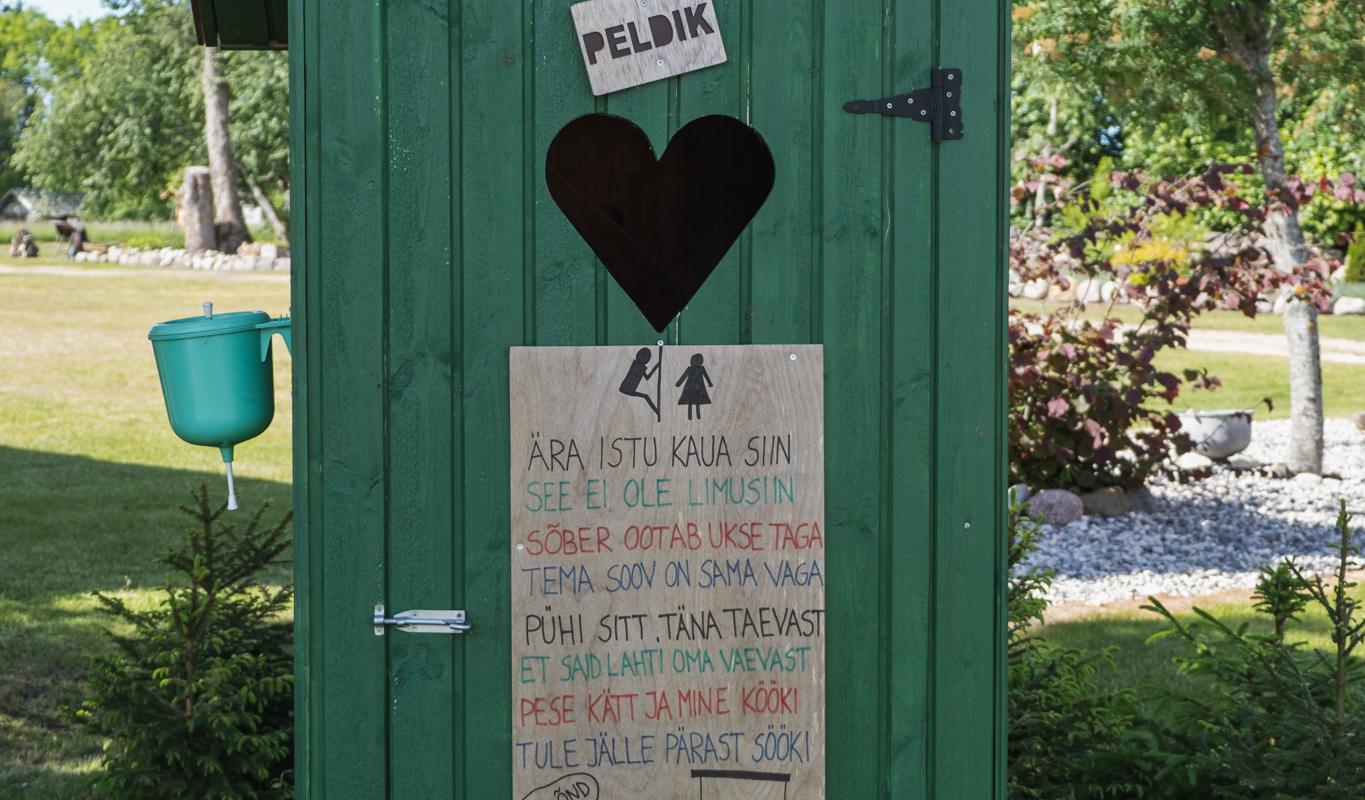 PELDIK
ÄRA ISTU KAUA SIIN
SEE EI OLE LIMUSIIN
SÕBER OOTAB UKSE TAGA
TEMA SOOV ON SAMA VAGA
PÜHI SITT, TÄNA TAEVAST
ET SAID LAHTI OMA VAEVAST
PESE KÄTT JA MINE KÖÖKI
TULE JÄLLE PÄRAST SÖÖKI